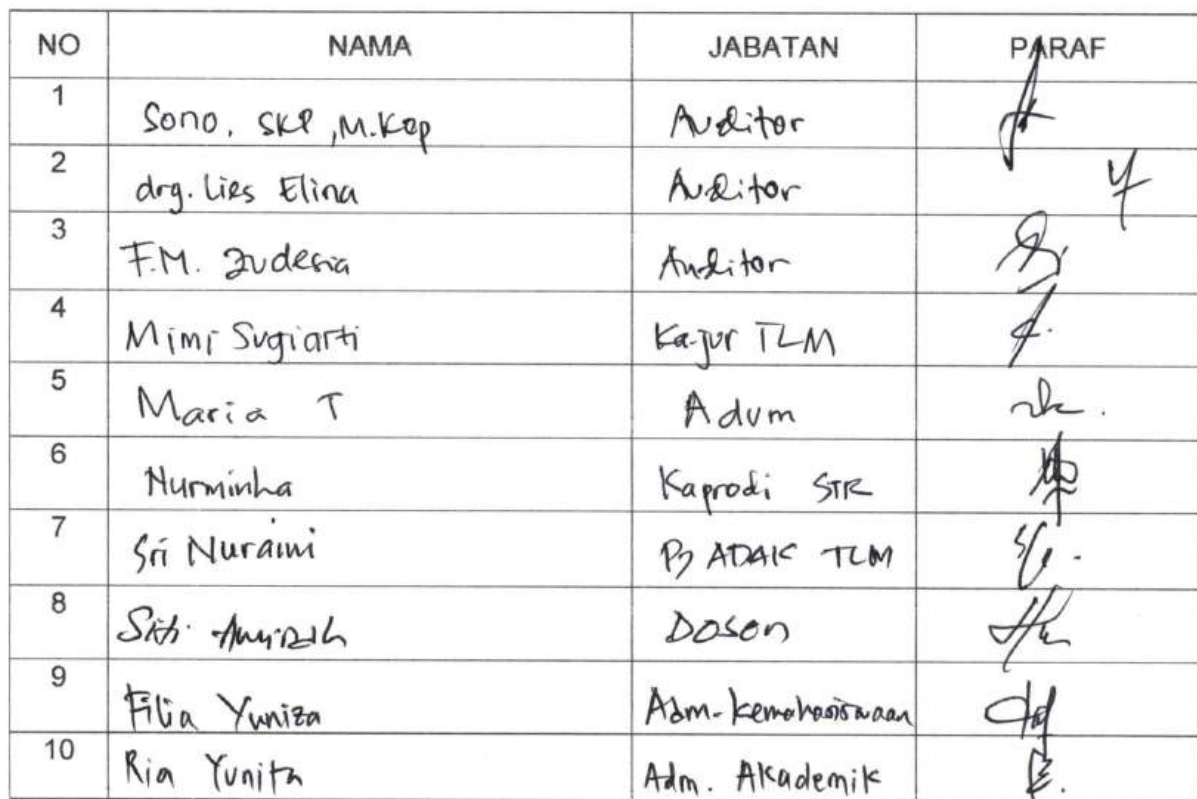 NO NAMA JABATAN PARAF
1 Sono, SKP, M.Kep Auditor
2 drg. Lies Elina Auditor
3 F.M. Judesia Auditor
4 Mimi Sugiarti Kajur TLM
5 Maria T Adum
6 Nurminha Kaprodi STR
7 Sri Nuraini Pj ADAK TLM
8 Siti Dosen
9 Filia Yuniza Adm. Kemahasiswaan
10 Ria Yunita Adm. Akademik